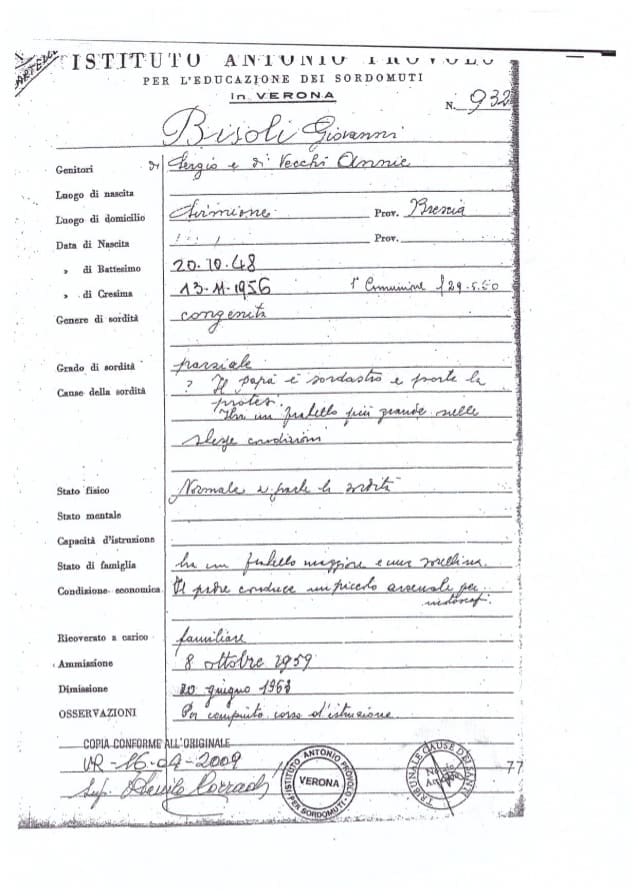 ISTITUTO ANTONIO PROVOLO
PER L'EDUCAZIONE DEI SORDOMUTI
In VERONA
N. 932
Bisoli Giovanni
Genitori di Sergio e di Vecchi Annie
Luogo di nascita
Luogo di domicilio Sirmione Prov. Brescia
Data di Nascita Prov.
» di Battesimo 20.10.48
» di Cresima 13-11-1956 1ª Comunione
Genere di sordità congenita
Grado di sordità parziale
Cause della sordità ? Il papà è sordastro e porta la
protesi.
Ha un fratello più grande nelle
stesse condizioni
Stato fisico Normale a parte la sordità
Stato mentale
Capacità d'istruzione
Stato di famiglia ha un fratello maggiore e una sorellina.
Condizione economica Il padre conduce un piccolo arsenale per
motoscafi.
Ricoverato a carico familiare
Ammissione 8 ottobre 1959
Dimissione 20 giugno 1963
OSSERVAZIONI Per compiuto corso d'istruzione
COPIA CONFORME ALL'ORIGINALE
VR-16-09-2009
ISTITUTO ANTONIO PROVOLO
VERONA
PER SORDOMUTI
TRIBUNALE CAUSE DEI SANTI
77